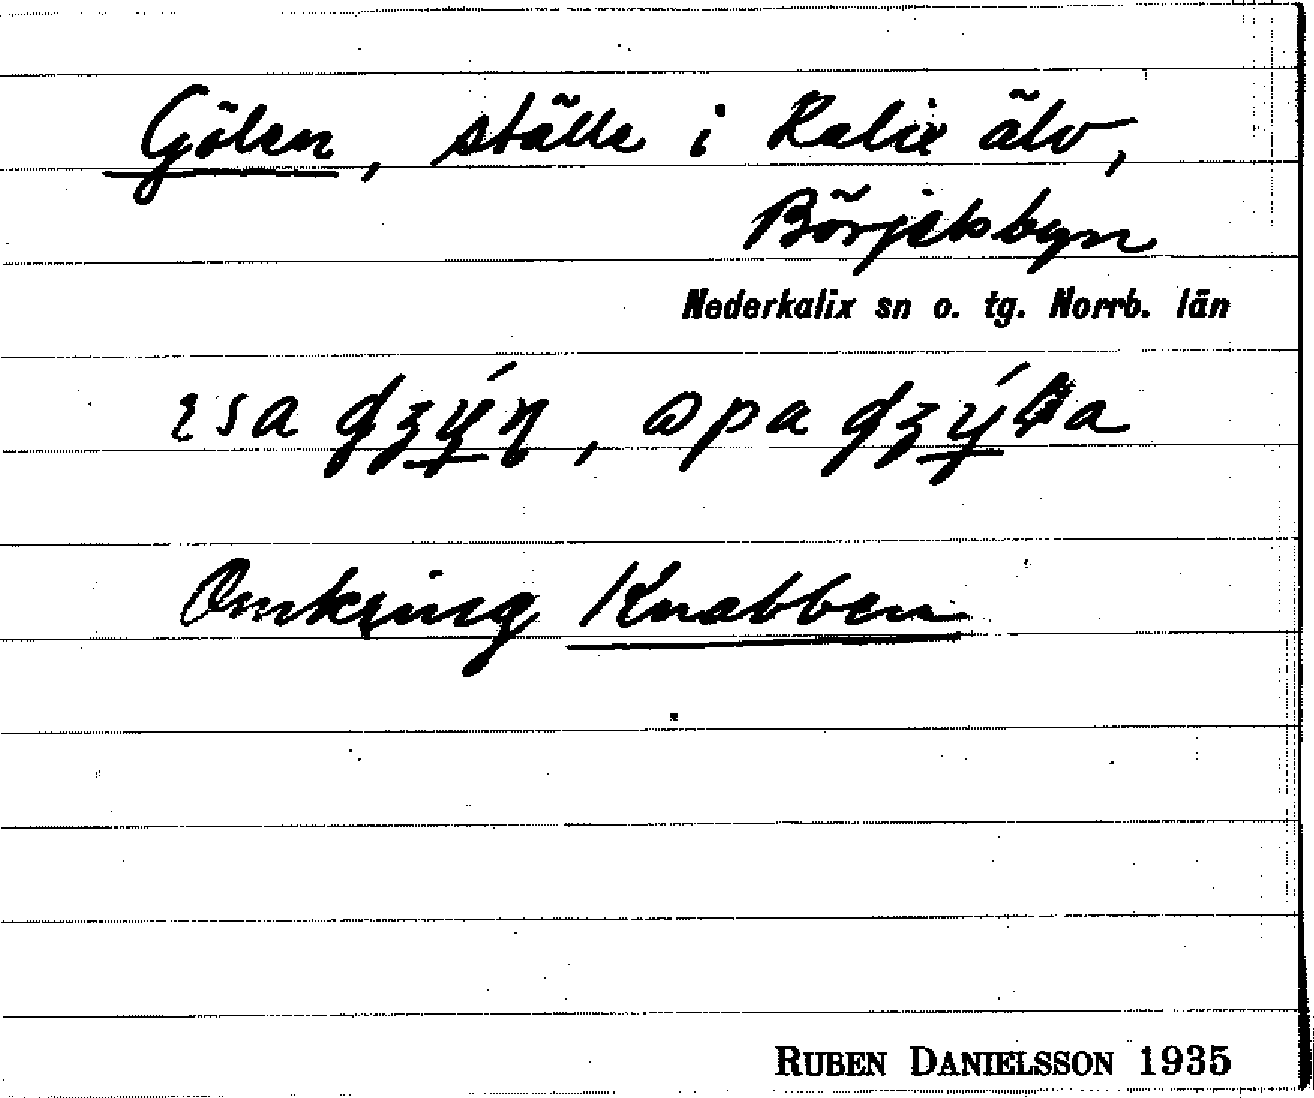 Gölen, ställe i Kalix älv,
Börjelsbyn
Nederkalix sn o. tg. Norrb. län
opa
Omkring Knabben
RUBEN DANIELSSON 1935